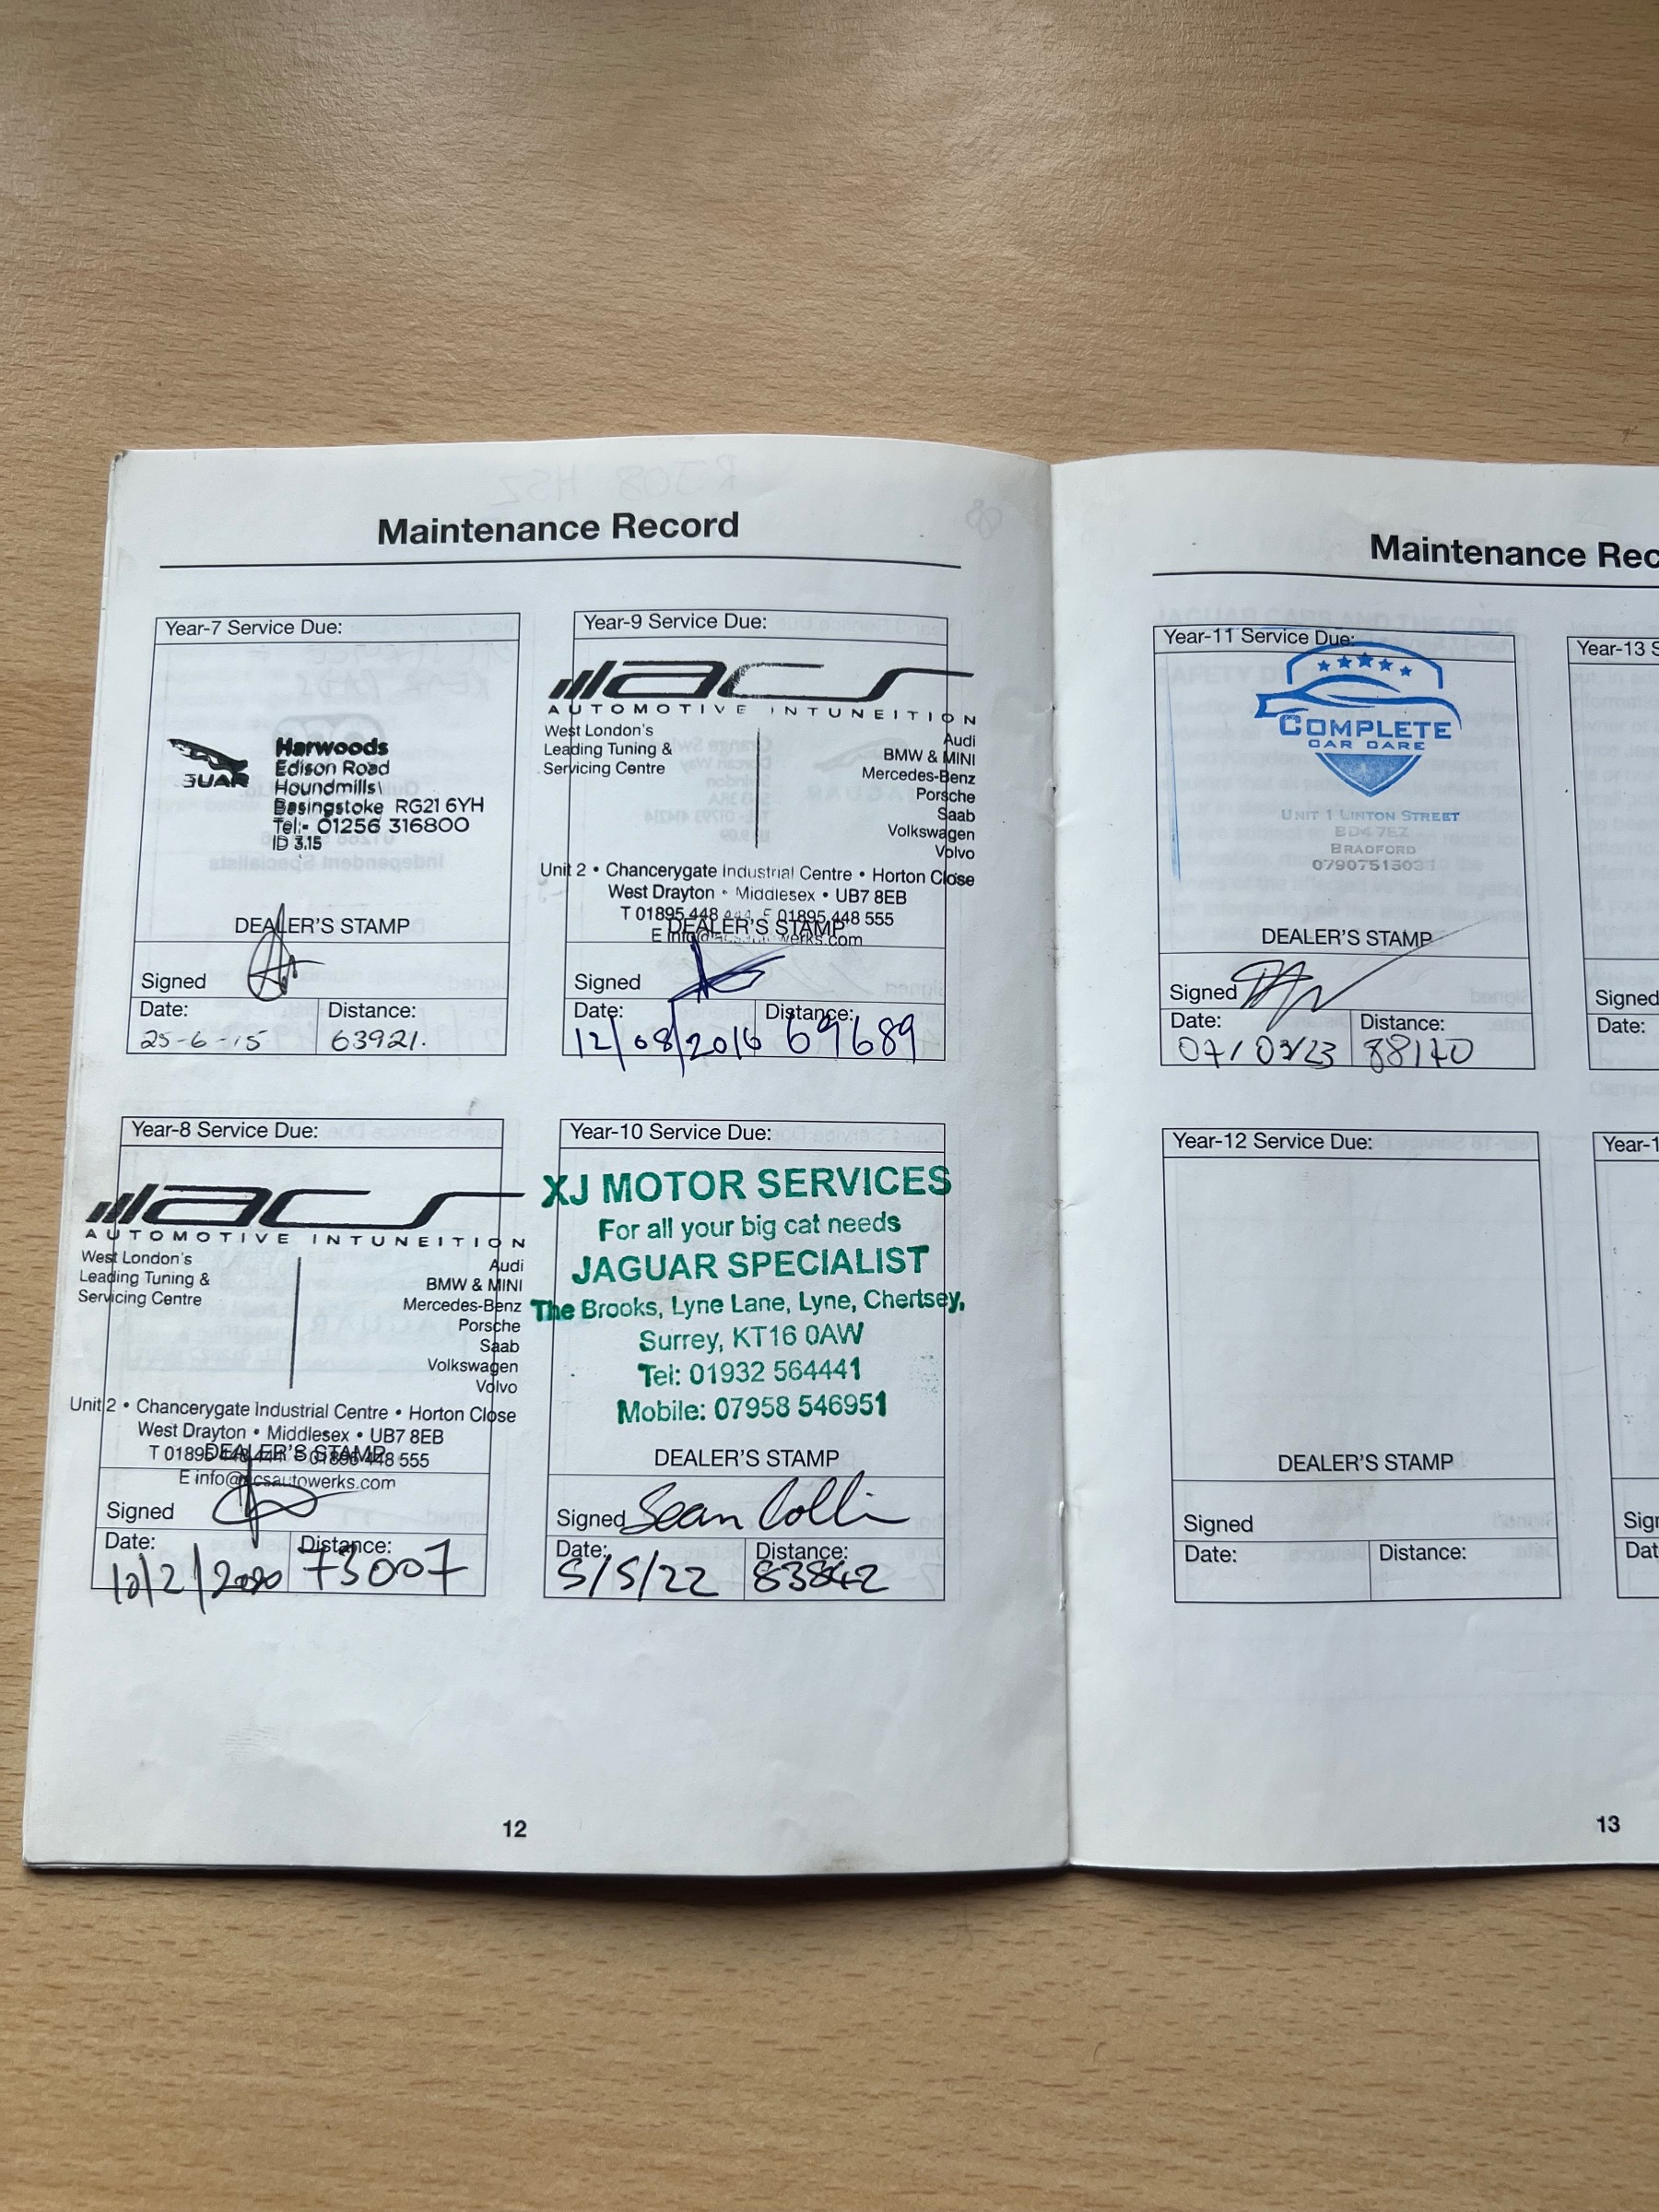 Maintenance Record
Year-7 Service Due:
JUAR
Harwoods
Edison Road
Houndmills
Basingstoke RG21 6YH
Tel:- 01256 316800
ID 3.15
DEALER'S STAMP
Signed
Date:
Distance:
25-6-15
63921.
Year-9 Service Due:
acs
AUTOMOTIVE INTUNEITION
West London's
Leading Tuning &
Servicing Centre
Audi
BMW & MINI
Mercedes-Benz
Porsche
Saab
Volkswagen
Volvo
Unit 2 • Chancerygate Industrial Centre • Horton Close
West Drayton • Middlesex • UB7 8EB
T 01895 448 444 F 01895 448 555
DEALER'S STAMP
Signed
Date:
Distance:
12/08/2016
69689
Year-8 Service Due:
acs
AUTOMOTIVE INTUNEITION
West London's
Leading Tuning &
Servicing Centre
Audi
BMW & MINI
Mercedes-Benz
Porsche
Saab
Volkswagen
Volvo
Unit 2 • Chancerygate Industrial Centre • Horton Close
West Drayton • Middlesex • UB7 8EB
T 01895 448 444 F 01895 448 555
DEALER'S STAMP
E info@acsautowerks.com
Signed
Date:
Distance:
10/2/2020
73007
Year-10 Service Due:
XJ MOTOR SERVICES
For all your big cat needs
JAGUAR SPECIALIST
The Brooks, Lyne Lane, Lyne, Chertsey,
Surrey, KT16 0AW
Tel: 01932 564441
Mobile: 07958 546951
DEALER'S STAMP
Signed Sean Colli
Date:
Distance:
5/5/22
83842
12
Maintenance Rec
Year-11 Service Due:
COMPLETE
CAR CARE
UNIT 1 LINTON STREET
BD4 7EZ
BRADFORD
07907515031
DEALER'S STAMP
Signed
Date:
Distance:
07/03/23
88170
Year-12 Service Due:
DEALER'S STAMP
Signed
Date:
Distance:
Year-13 S
Signed
Date:
Year-1
Sig
Dat
13